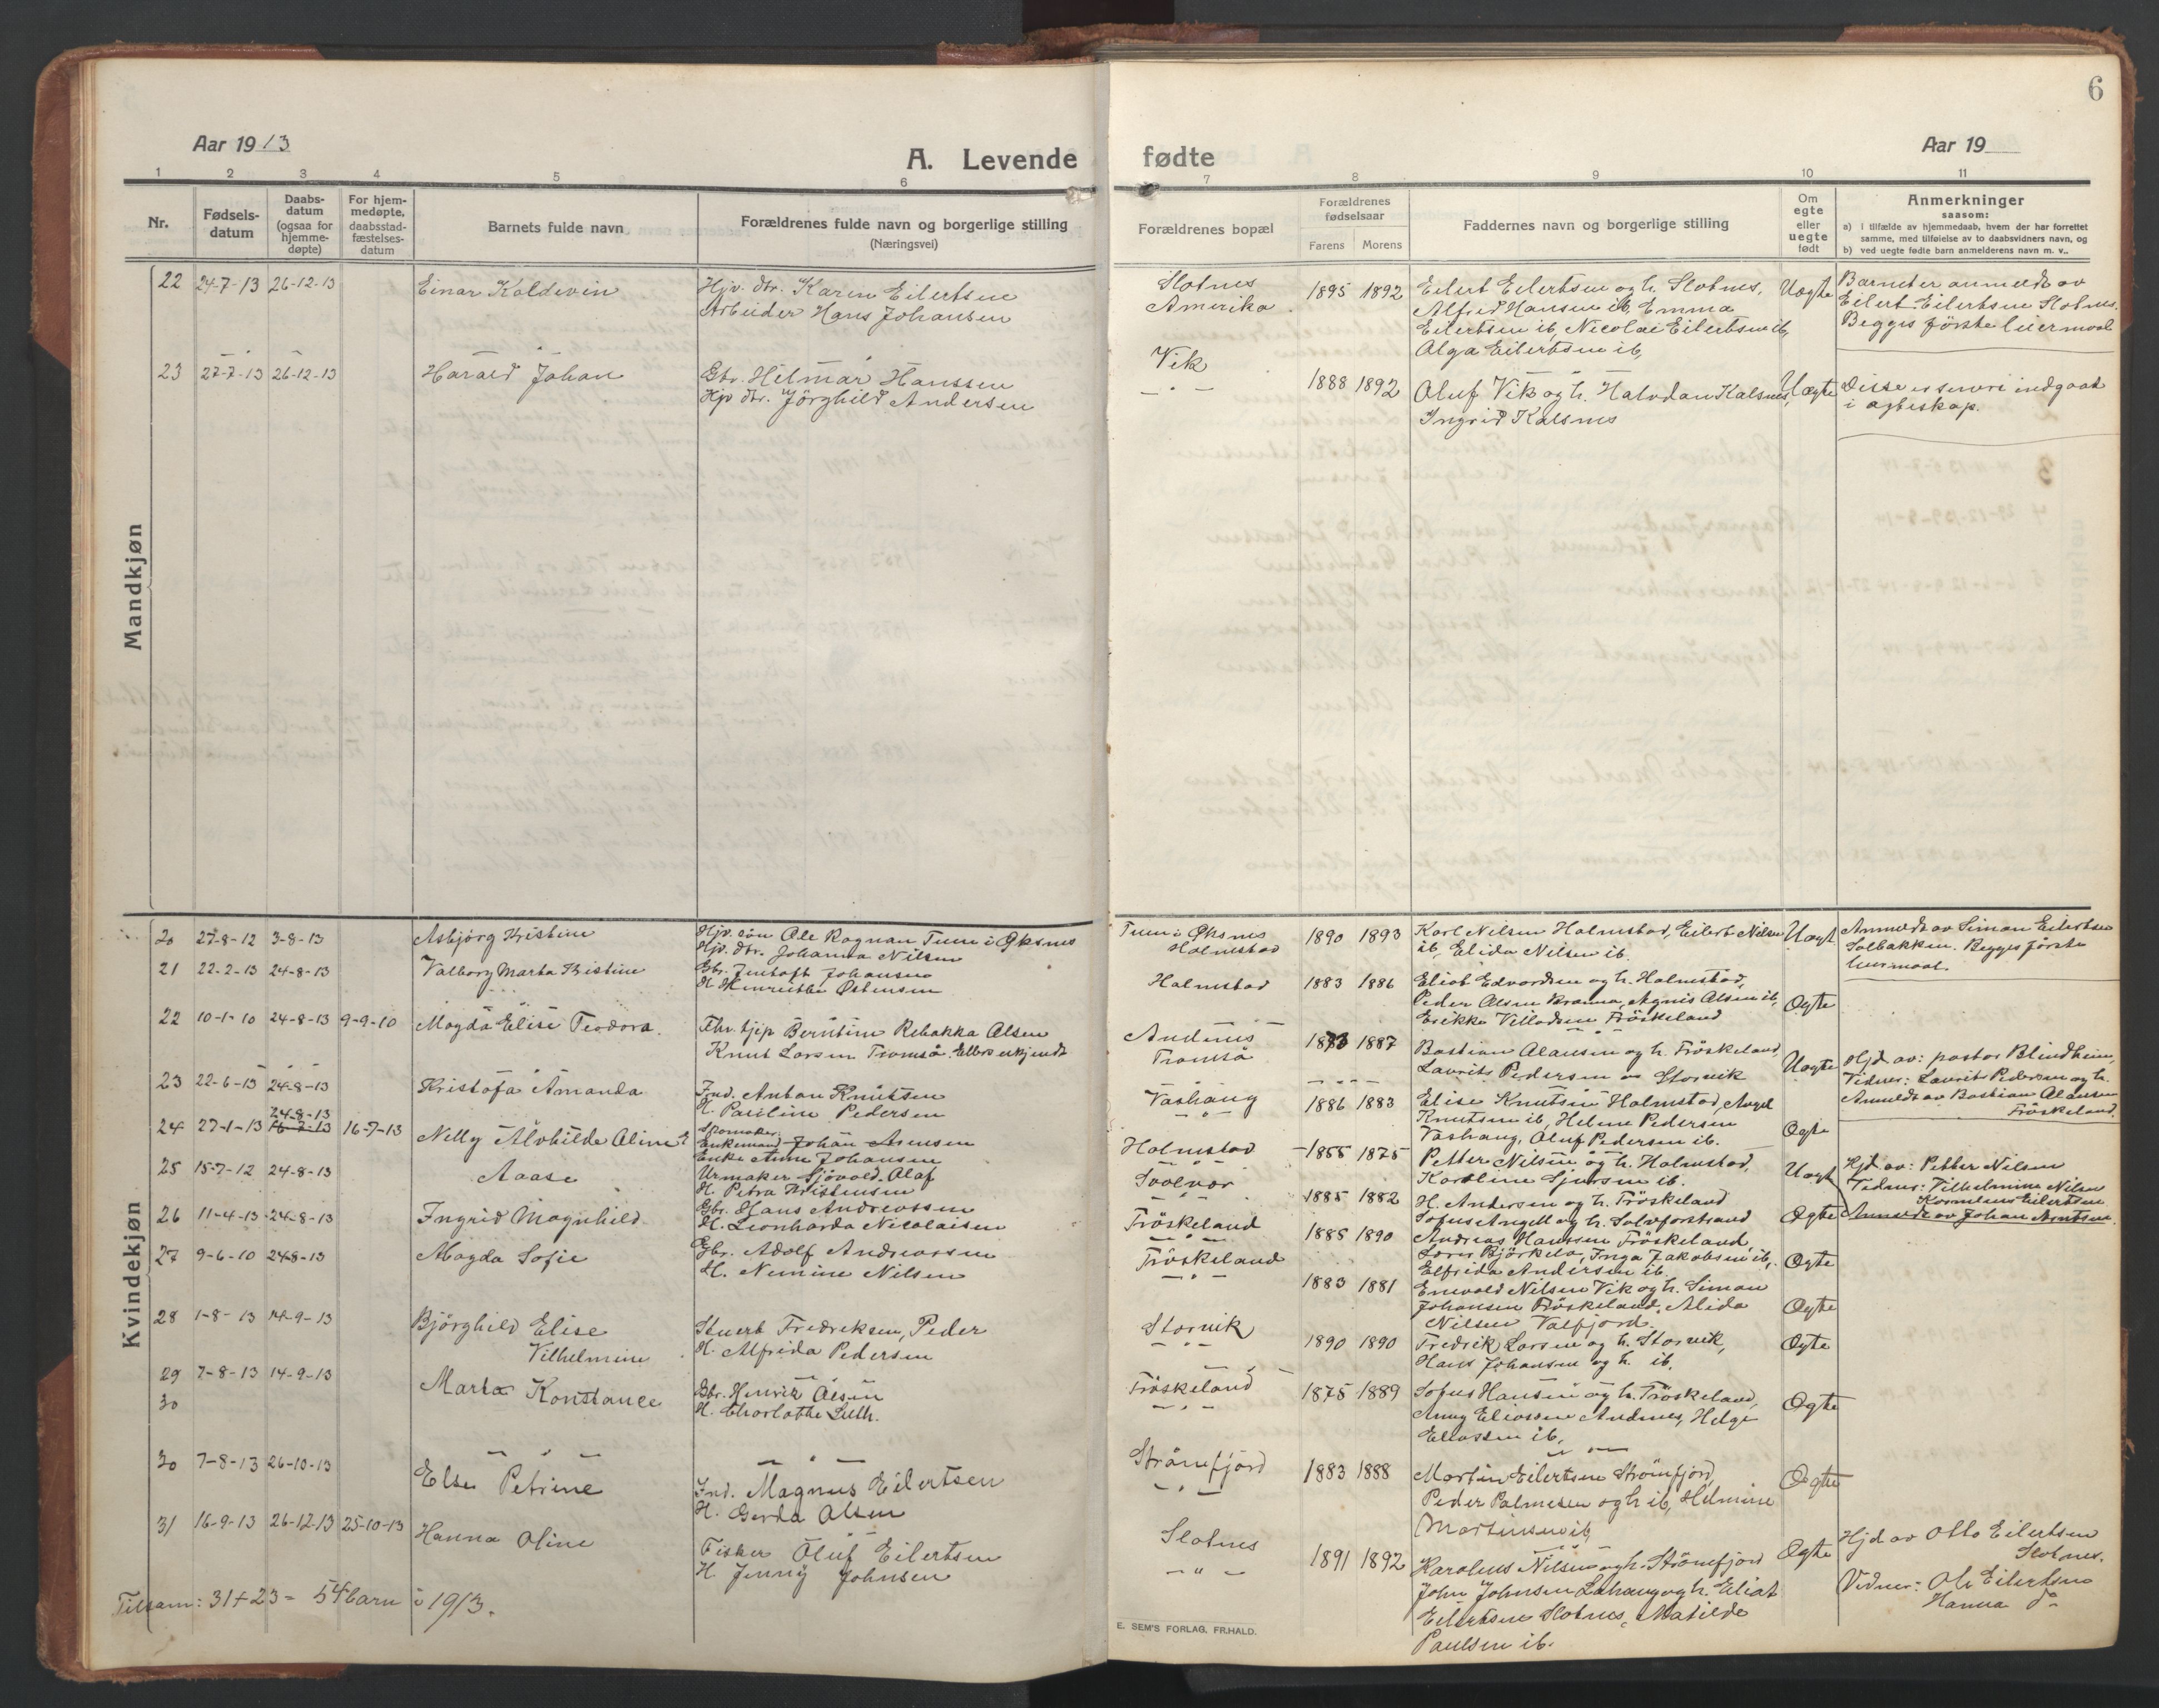 6
Aar 1913
A. Levende fødte
Aar 19
1 2 3 4 5 6 7 8 9 10 11
Nr.
Fødsels-
datum
Daabs-
datum
(ogsaa for
hjemme-
døpte)
For hjem-
medøpte,
daabsstad-
fæstelses-
datum
Barnets fulde navn
Forældrenes fulde navn og borgerlige stilling
(Næringsvei)
Forældrenes bopæl
Forældrenes
fødselsaar
Farens Morens
Faddernes navn og borgerlige stilling
Om
egte
eller
uegte
født
Anmerkninger
saasom:
a) i tilfælde av hjemmedaab, hvem der har forrettet
samme, med tilføielse av to daabsvidners navn, og
b) ved uegte fødte barn anmelderens navn m. v..
Mandkjøn
22 24-7-13 26-12-13 Einar Koldevin
Hjv. dtr. Karen Eilertsen
Arbeider Hans Johansen
Slotnes
Amerika
1895 1892
Eilert Eilertsen og h. Slotnes,
Alfred Hansen ib, Emma
Eilertsen ib, Nicolai Eilertsen ib,
Alga Eilertsen ib,
Uegte
Barnet er anmeldt av
Eilert Eilertsen Slotnes.
Begges første leiermaal
23 27-7-13 26-12-13 Harald Johan
Gbr. Hilmar Hanssen
Hjv dtr. Jörghild Andersen
Vik
1888 1892
Oluf Vik og h. Halvdan Kalsnes,
Ingrid Kalsnes
Uegte
Disse er senere indgaat
i ægteskap.
Kvindekjøn
20 27-8-12 3-8-13 Asbjørg Kristine
Hjv. søn Ole Ragnar Tunn i Øksnes
Hjv. dtr. Johanna Nilsen
Tunn i Øksnes
Holmstad
1890 1893
Karl Nilsen Holmstad, Eilert Nilsen
ib, Elida Nilsen ib.
Uegt
Anmeldt av Simon Eilertsen
Solbakken. Begges første
leiermaal.
21 22-2-13 24-8-13 Valborg Marta Kristine
Gbr. Jentoft Johansen
H. Henriette Østensen
Holmstad
1883 1886
Eliot Edvardsen og h. Holmstad,
Peder Olsen Kranna, Agnes Olsen ib,
Erikke Villadsen Fröskeland
Ogte
22 10-1-10 24-8-13 9-9-10 Magda Elise Teodora.
Fhv. tjip Berntine Rebakka Olsen
Knut Larsen Tromsø.
Andenes
Tromsø
1887
Bastian Olausen og h. Fröskeland,
Laurits Pedersen Storvik
Uegte
Hjd av: pastor Blindheim,
Vidner: Laurits Pedersen og h.
Anmeldt av Bastian Olausen
Fröskeland.
23 22-6-13 24-8-13 Kristofa Amanda
Ind. Anton Knutsen
H. Pauline Pedersen
Vashaug
1886 1883
Elise Knutsen Holmstad, Angel
Knutsen ib, Helene Pedersen
Vashaug, Oluf Pedersen ib.
Ogte
24 27-1-13 24-8-13 16-7-13 Nelly Alvhilde Aline
Skomaker
Enkemand Johan Arntsen
Enke Anne Johansen
Holmstad
1855 1875
Petter Nilsen og h. Holmstad,
Karoline Sjursen ib.
Uegt
Hjd av: Petter Nilsen
Vidner: Vilhelmine Nilsen
Kornelius Eilertsen
Anmeldt av Johan Arntsen.
25 15-7-12 24-8-13 Aaase
Urmaker Sjövold. Olaf
H. Petra Kristensen
Svolvær
1885 1882
H. Andersen og h. Fröskeland
Sofus Angell og h. Solvforstrand
Ogte
26 11-4-13 24-8-13 Ingrid Magnhild
Gbr. Hans Andreassen
H. Leonharda Nicolaisen
Fröskeland
1885 1890
Andreas Hanssen Fröskeland,
Björkelo, Inga Jakobsen ib,
Elfrida Andersen ib.
Ogte
27 9-6-10 24-8-13 Magda Sofie
Gbr. Adolf Andreassen
H. Nemine Nilsen
Fröskeland
1883 1881
Enevold Nilsen Vik og h. Simon
Johansen Fröskeland, Alida
Nilsen Valfjord.
Ogte
28 1-8-13 14-9-13 Bjørghild Elise
Vilhelmine
Stuert Fredreksen, Peder
H. Alfrida Pedersen
Storvik
1890 1890
Fredrik Larsen og h. Storvik,
Hans Johansen og h. ib.
Ogte
29 7-8-13 14-9-13 Marta Konstance
30
Gbr. Henrik Olsen
H. Charlotte Seth.
Fröskeland
1875 1889
Sofus Hansen og h. Fröskeland,
Anny Eliassen Andenes, Helge
Eliassen ib,
Ogte
30 7-8-13 26-10-13 Else Petrine
Ind. Magnus Eilertsen
H. Gerda Olsen
Strömfjord
1883 1888
Martin Eilertsen Strömfjord,
Peder Palmesen og h ib, Helmine
Martinsen ib,
Ogte
31 16-9-13 26-12-13 25-10-13 Hanna Oline
Fisker Oluf Eilertsen
H. Jenny Johnsen
Slotnes
1891 1892
Karolius Nilsen og h. Strömfjord
John Johnsen Lahaug og h. Eliot
Eilertsen Slotnes, Matilde
Paulsen ib.
Ogte
Hjd av Otto Eilertsen
Slotnes.
Vidner: Ole Eilertsen
Hanna do
Tilsam: 31+23 = 54 barn i 1913.
E. SEM'S FORLAG, FR.HALD.